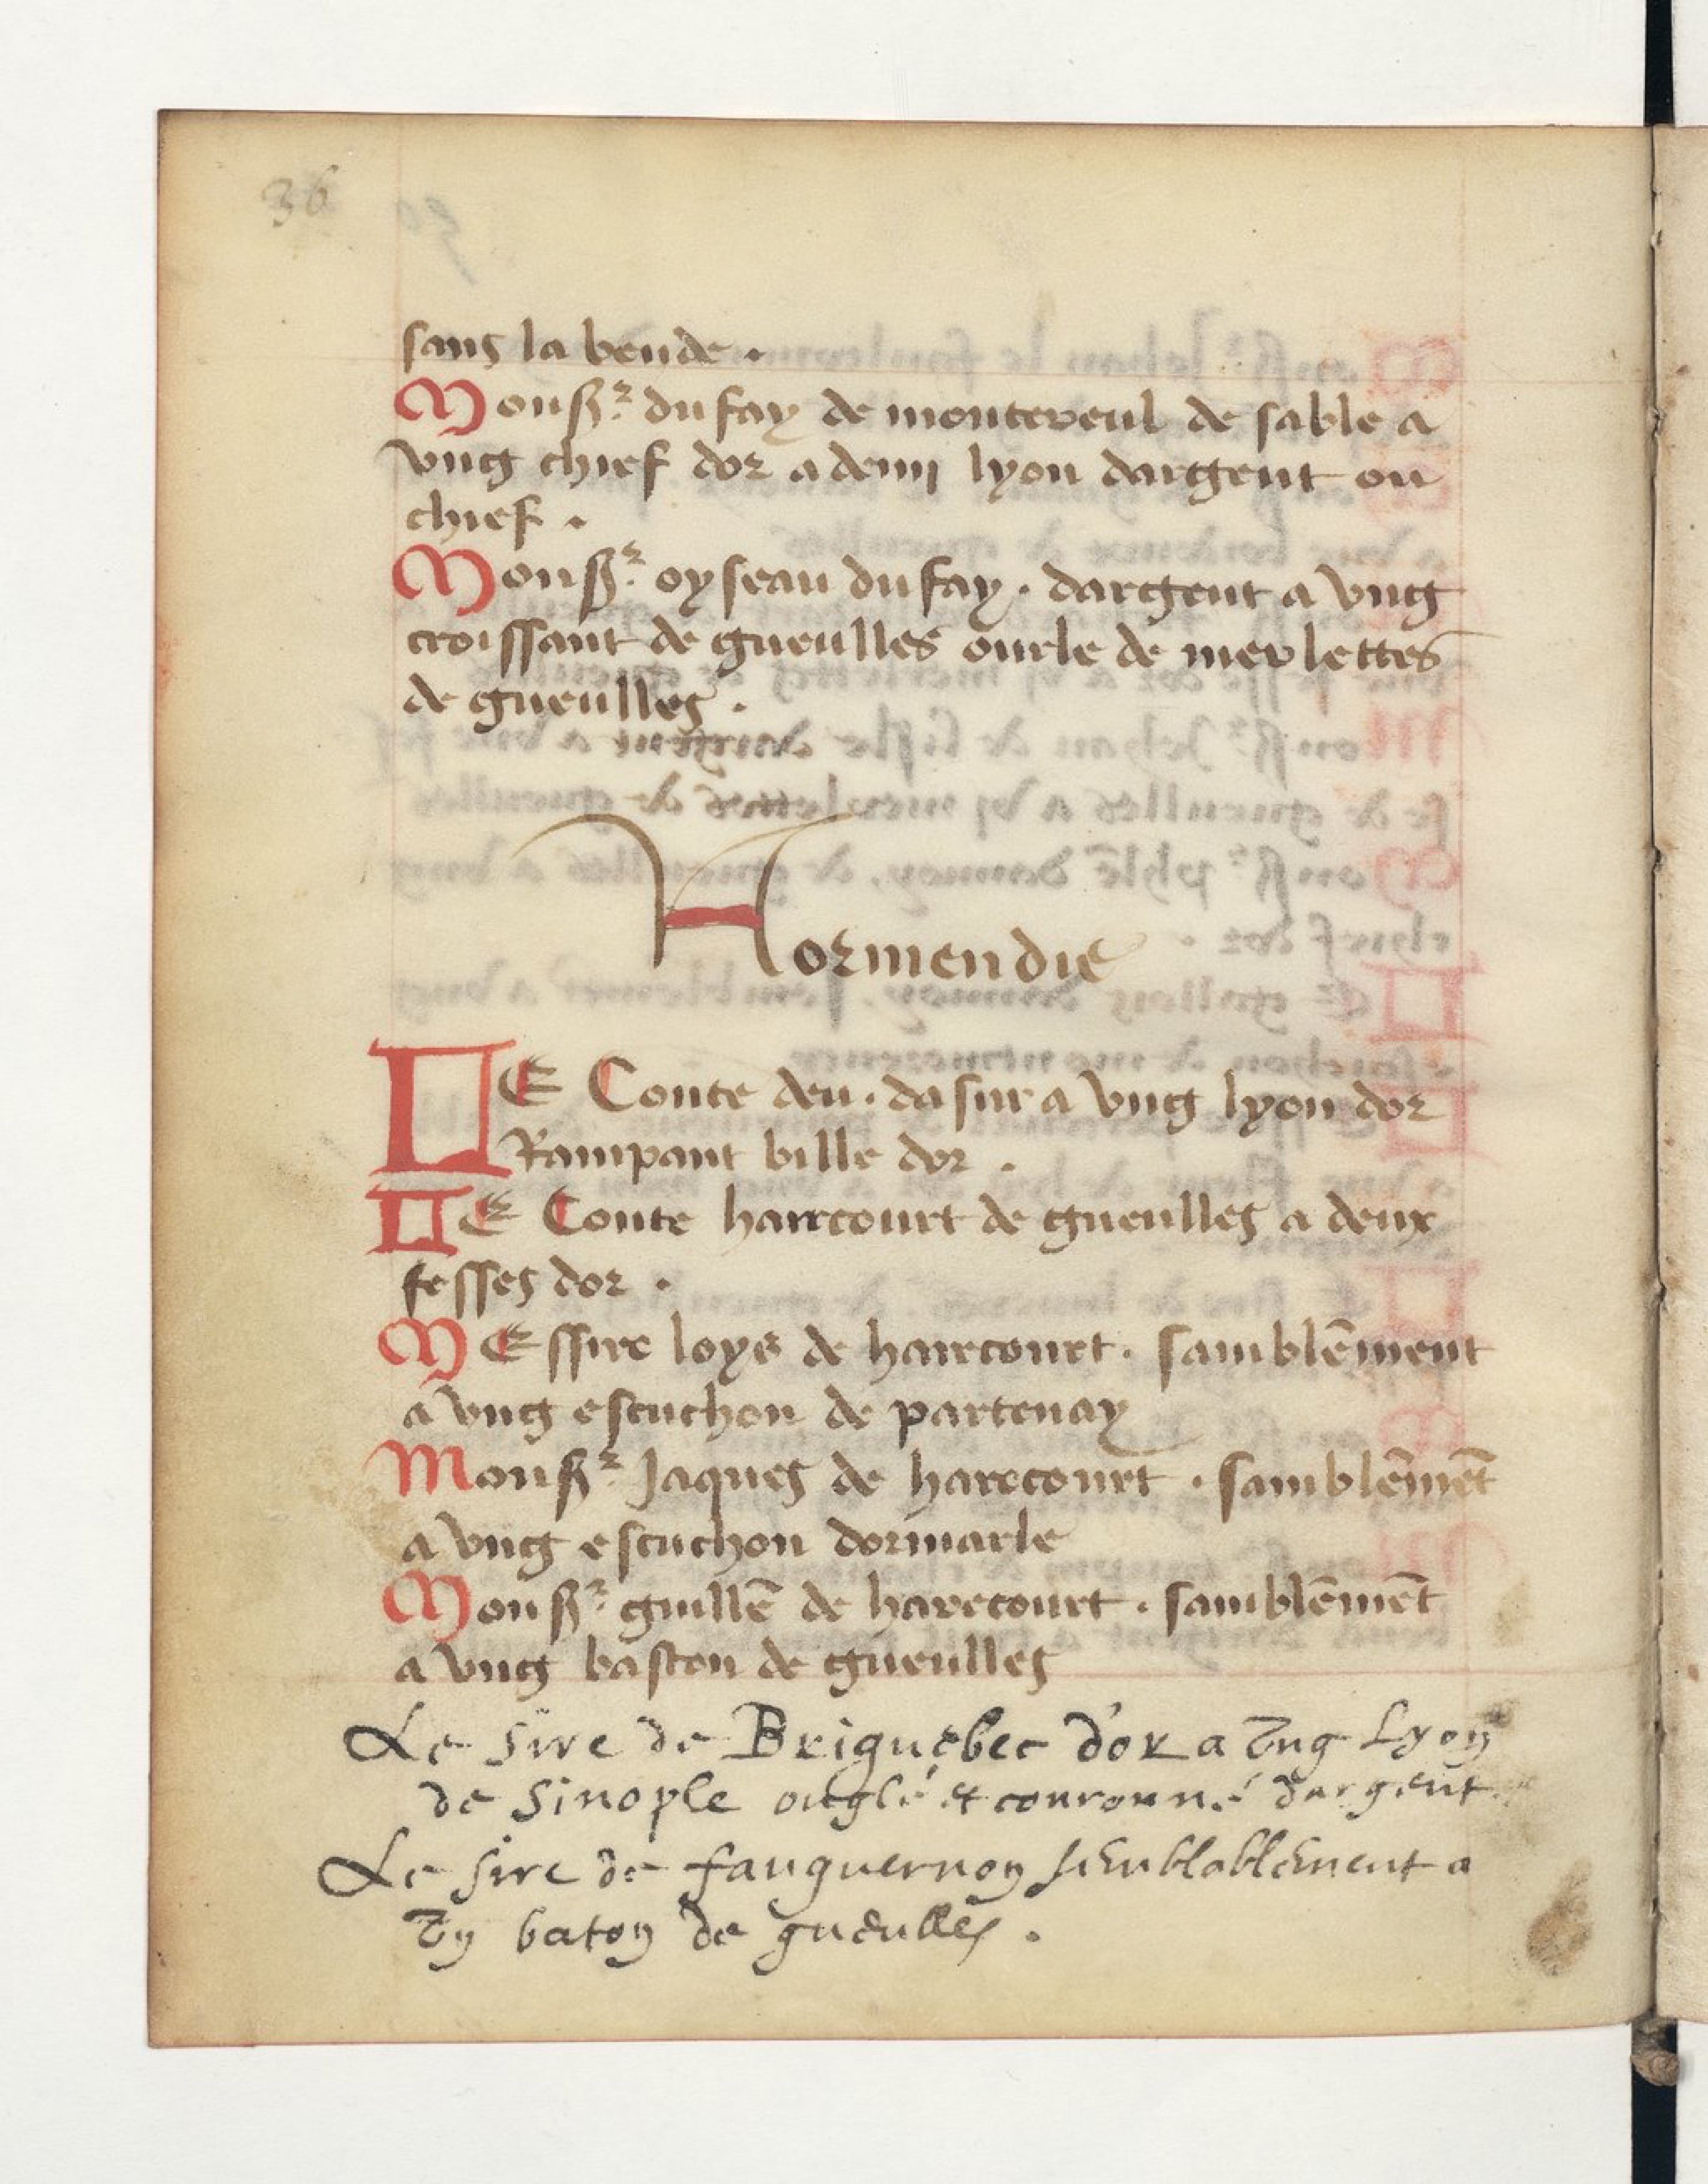 36
sans la bende .
Monsr du fay de montereul de sable a
vng chief dor a demi lyon dargent ou
chief .
Monsr oyseau du fay . dargent a vng
croissant de gueulles ourle de merlettes
de gueulles .
Normendie
LE Conte deu . dasur a vng lyon dor
Rampant bille dor .
LE Conte harrcourt de gueulles a deux
fesses dor .
MEssire loys de harecourt . samblēment
a vng escuchon de partenay
Monsr Jaques de harecourt . samblēmēt
a vng escuchon dormarle
Monsr guillē de harecourt . samblēmēt
a vng baston de gueulles
Le sire de Briquebec d'or a vng Lyon
de Sinople onglé et couronné dargent
Le sire de fauguernon semblablement a
vn baton de gueulles .